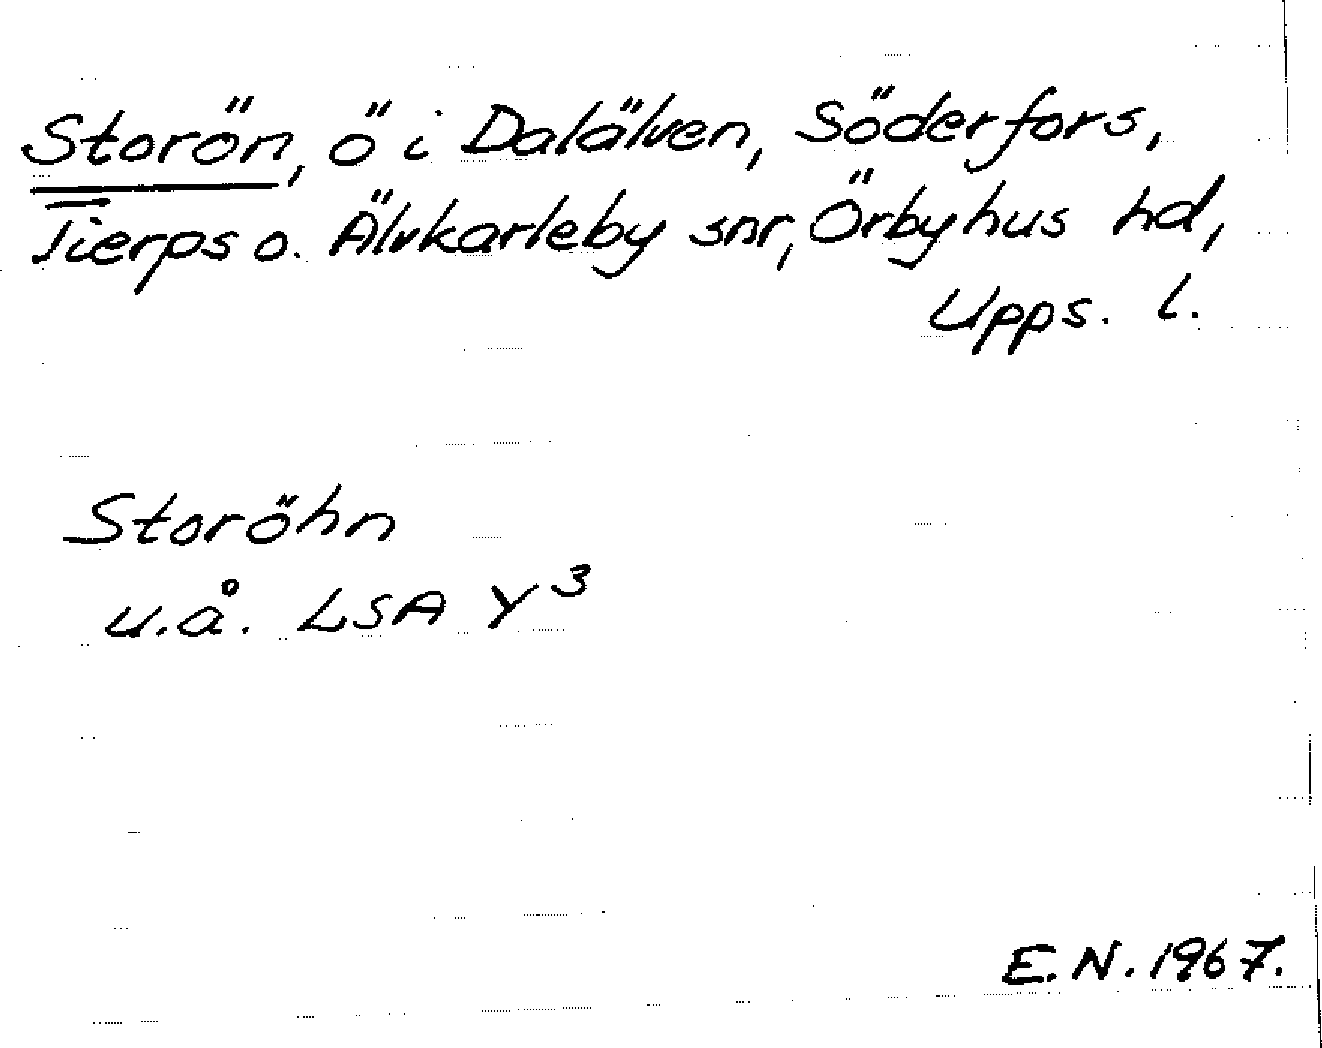 Storön, ö i Dalälven, Söderfors,
Tierps o. Älvkarleby snr, Örbyhus hd,
Upps. l.
Storöhn
u.å. LSA Y³
E.N. 1967.